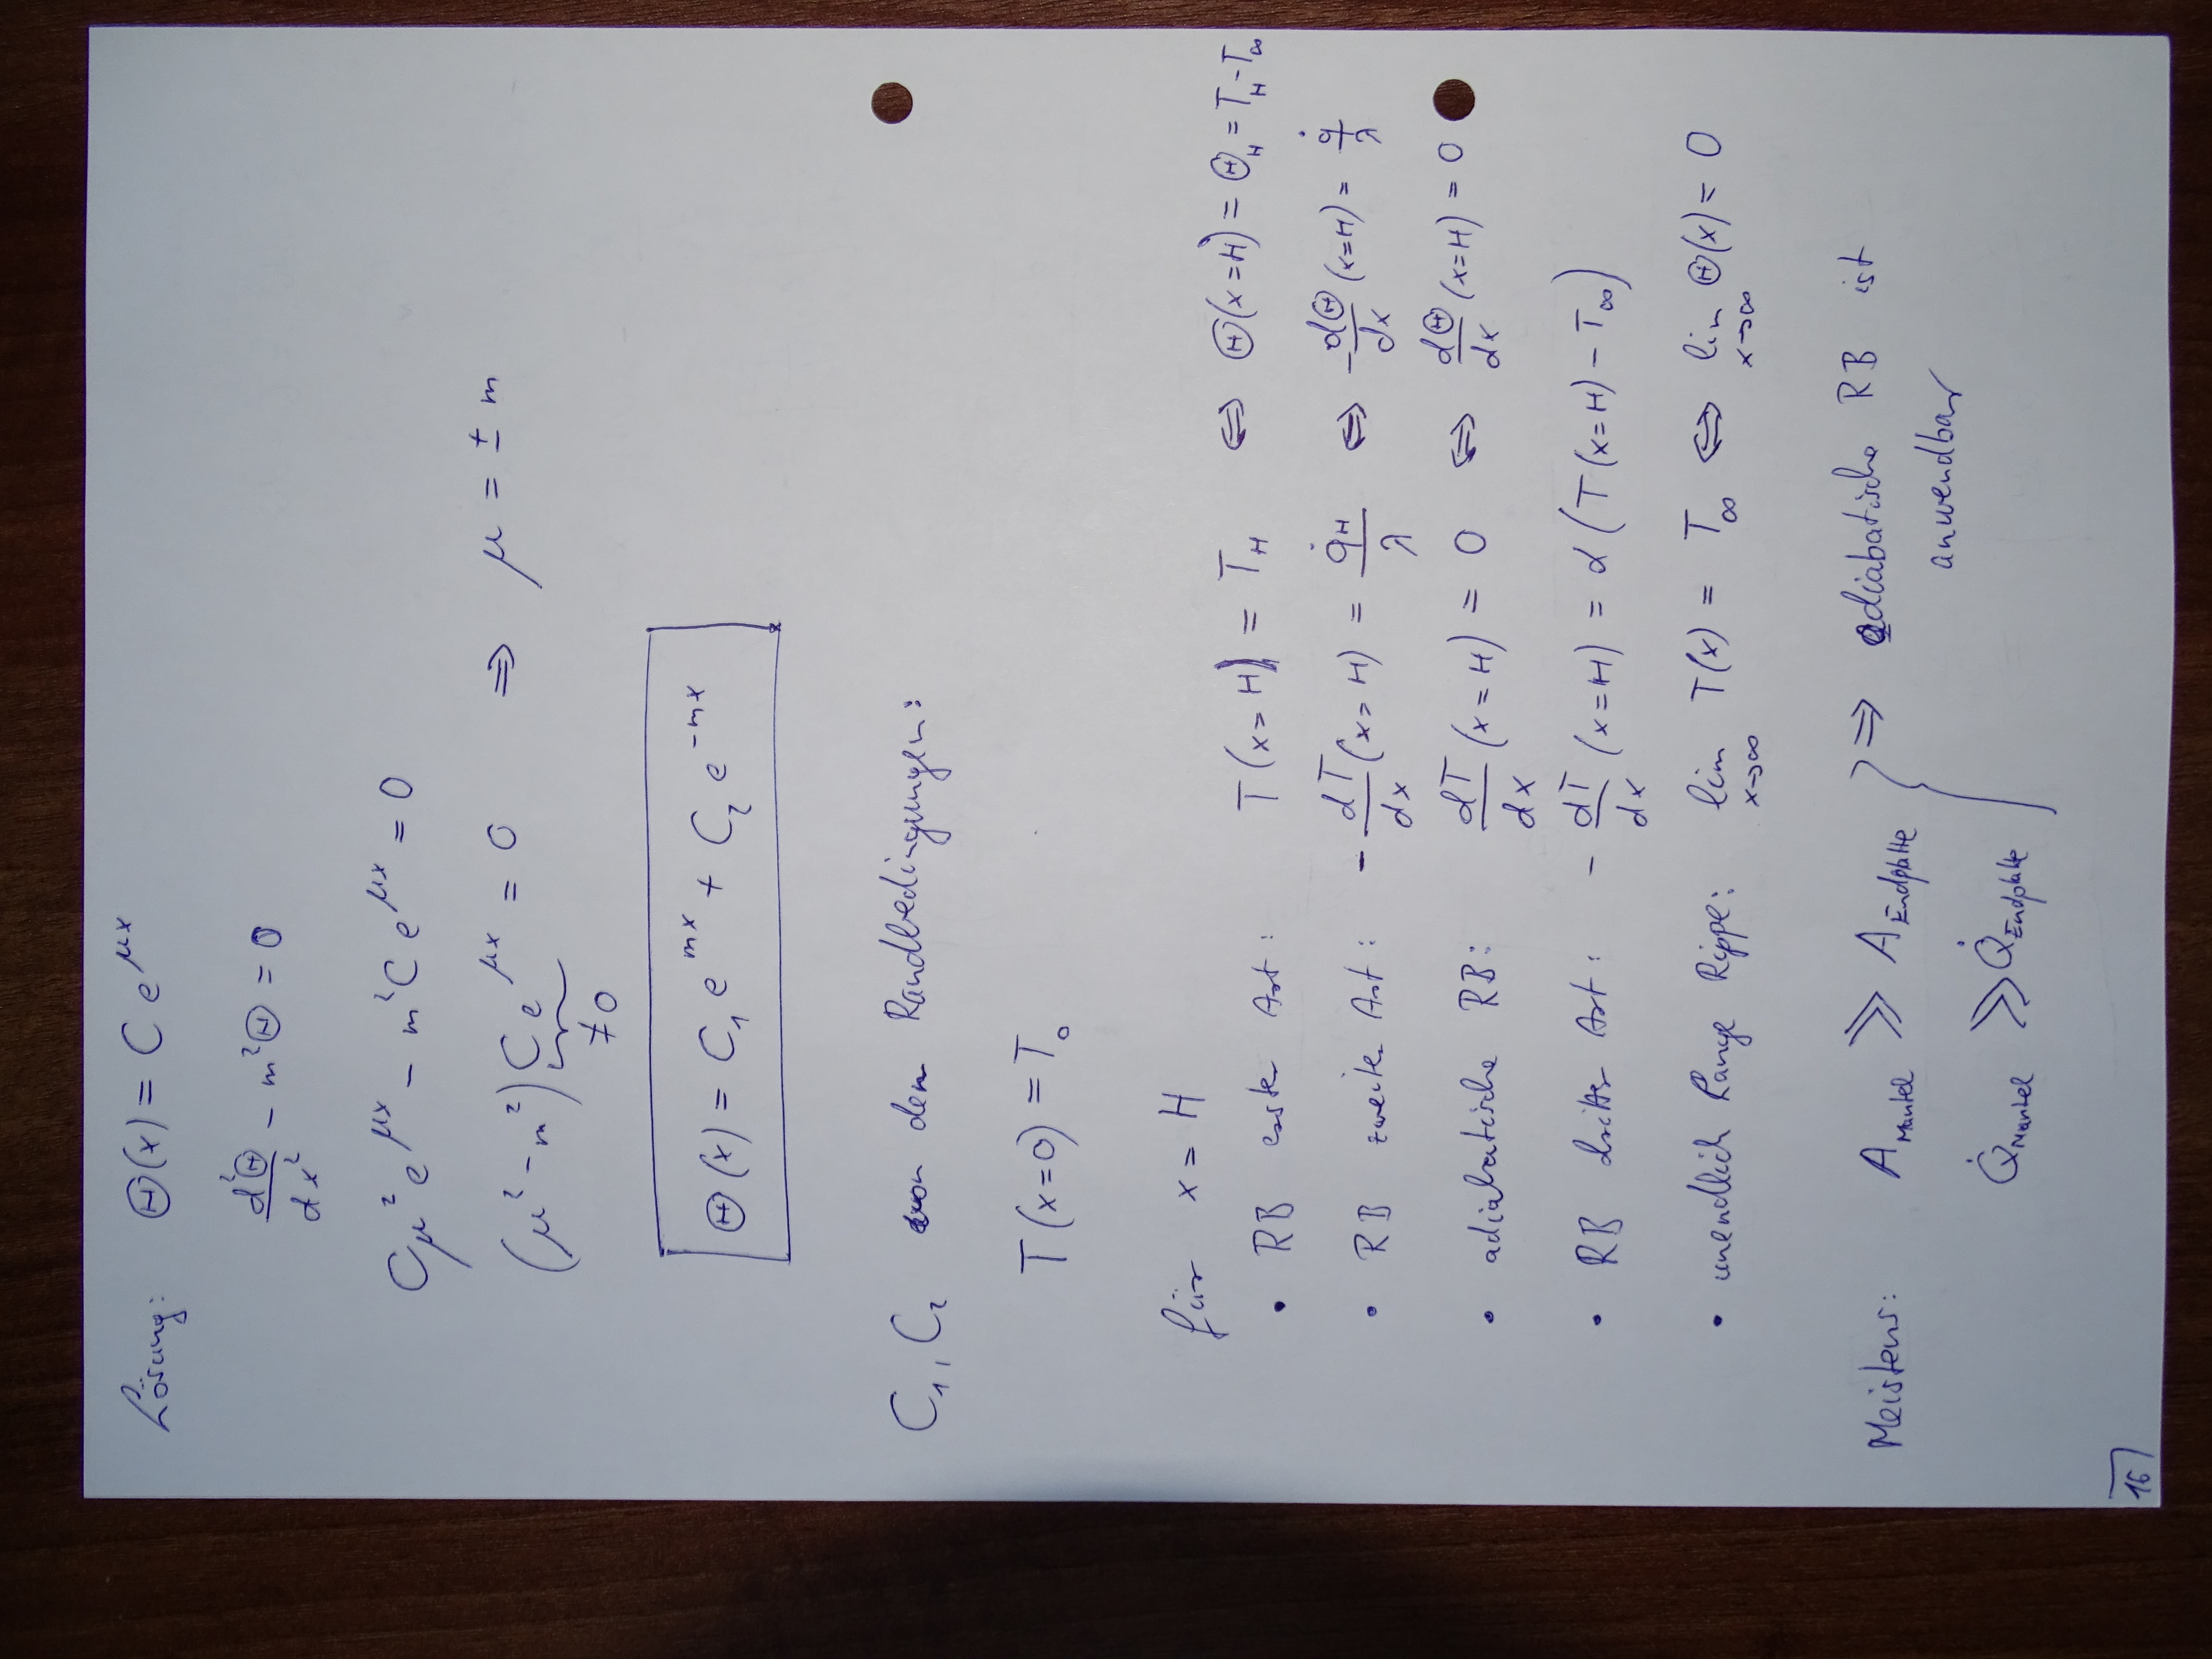 Lösung: Θ(x) = C e^{μx}
d²Θ/dx² - m²Θ = 0
Cμ² e^{μx} - m² C e^{μx} = 0
(μ² - m²) C e^{μx} = 0 ⇒ μ = ± m
≠ 0
Θ(x) = C₁ e^{mx} + C₂ e^{-mx}
C₁, C₂ von den Randbedingungen:
T(x=0) = T₀
für x = H
• RB erster Art: T(x=H) = T_H ⇔ Θ(x=H) = Θ_H = T_H - T_∞
• RB zweiter Art: - dT/dx (x=H) = q̇_H/λ ⇔ - dΘ/dx (x=H) = q̇/λ
• adiabatische RB: dT/dx (x=H) = 0 ⇔ dΘ/dx (x=H) = 0
• RB dritter Art: - dT/dx (x=H) = α (T(x=H) - T_∞)
• unendlich lange Rippe: lim_{x→∞} T(x) = T_∞ ⇔ lim_{x→∞} Θ(x) = 0
Meistens: A_Mantel ≫ A_Endplatte } ⇒ adiabatische RB ist
Q̇_Mantel ≫ Q̇_Endplatte anwendbar
16